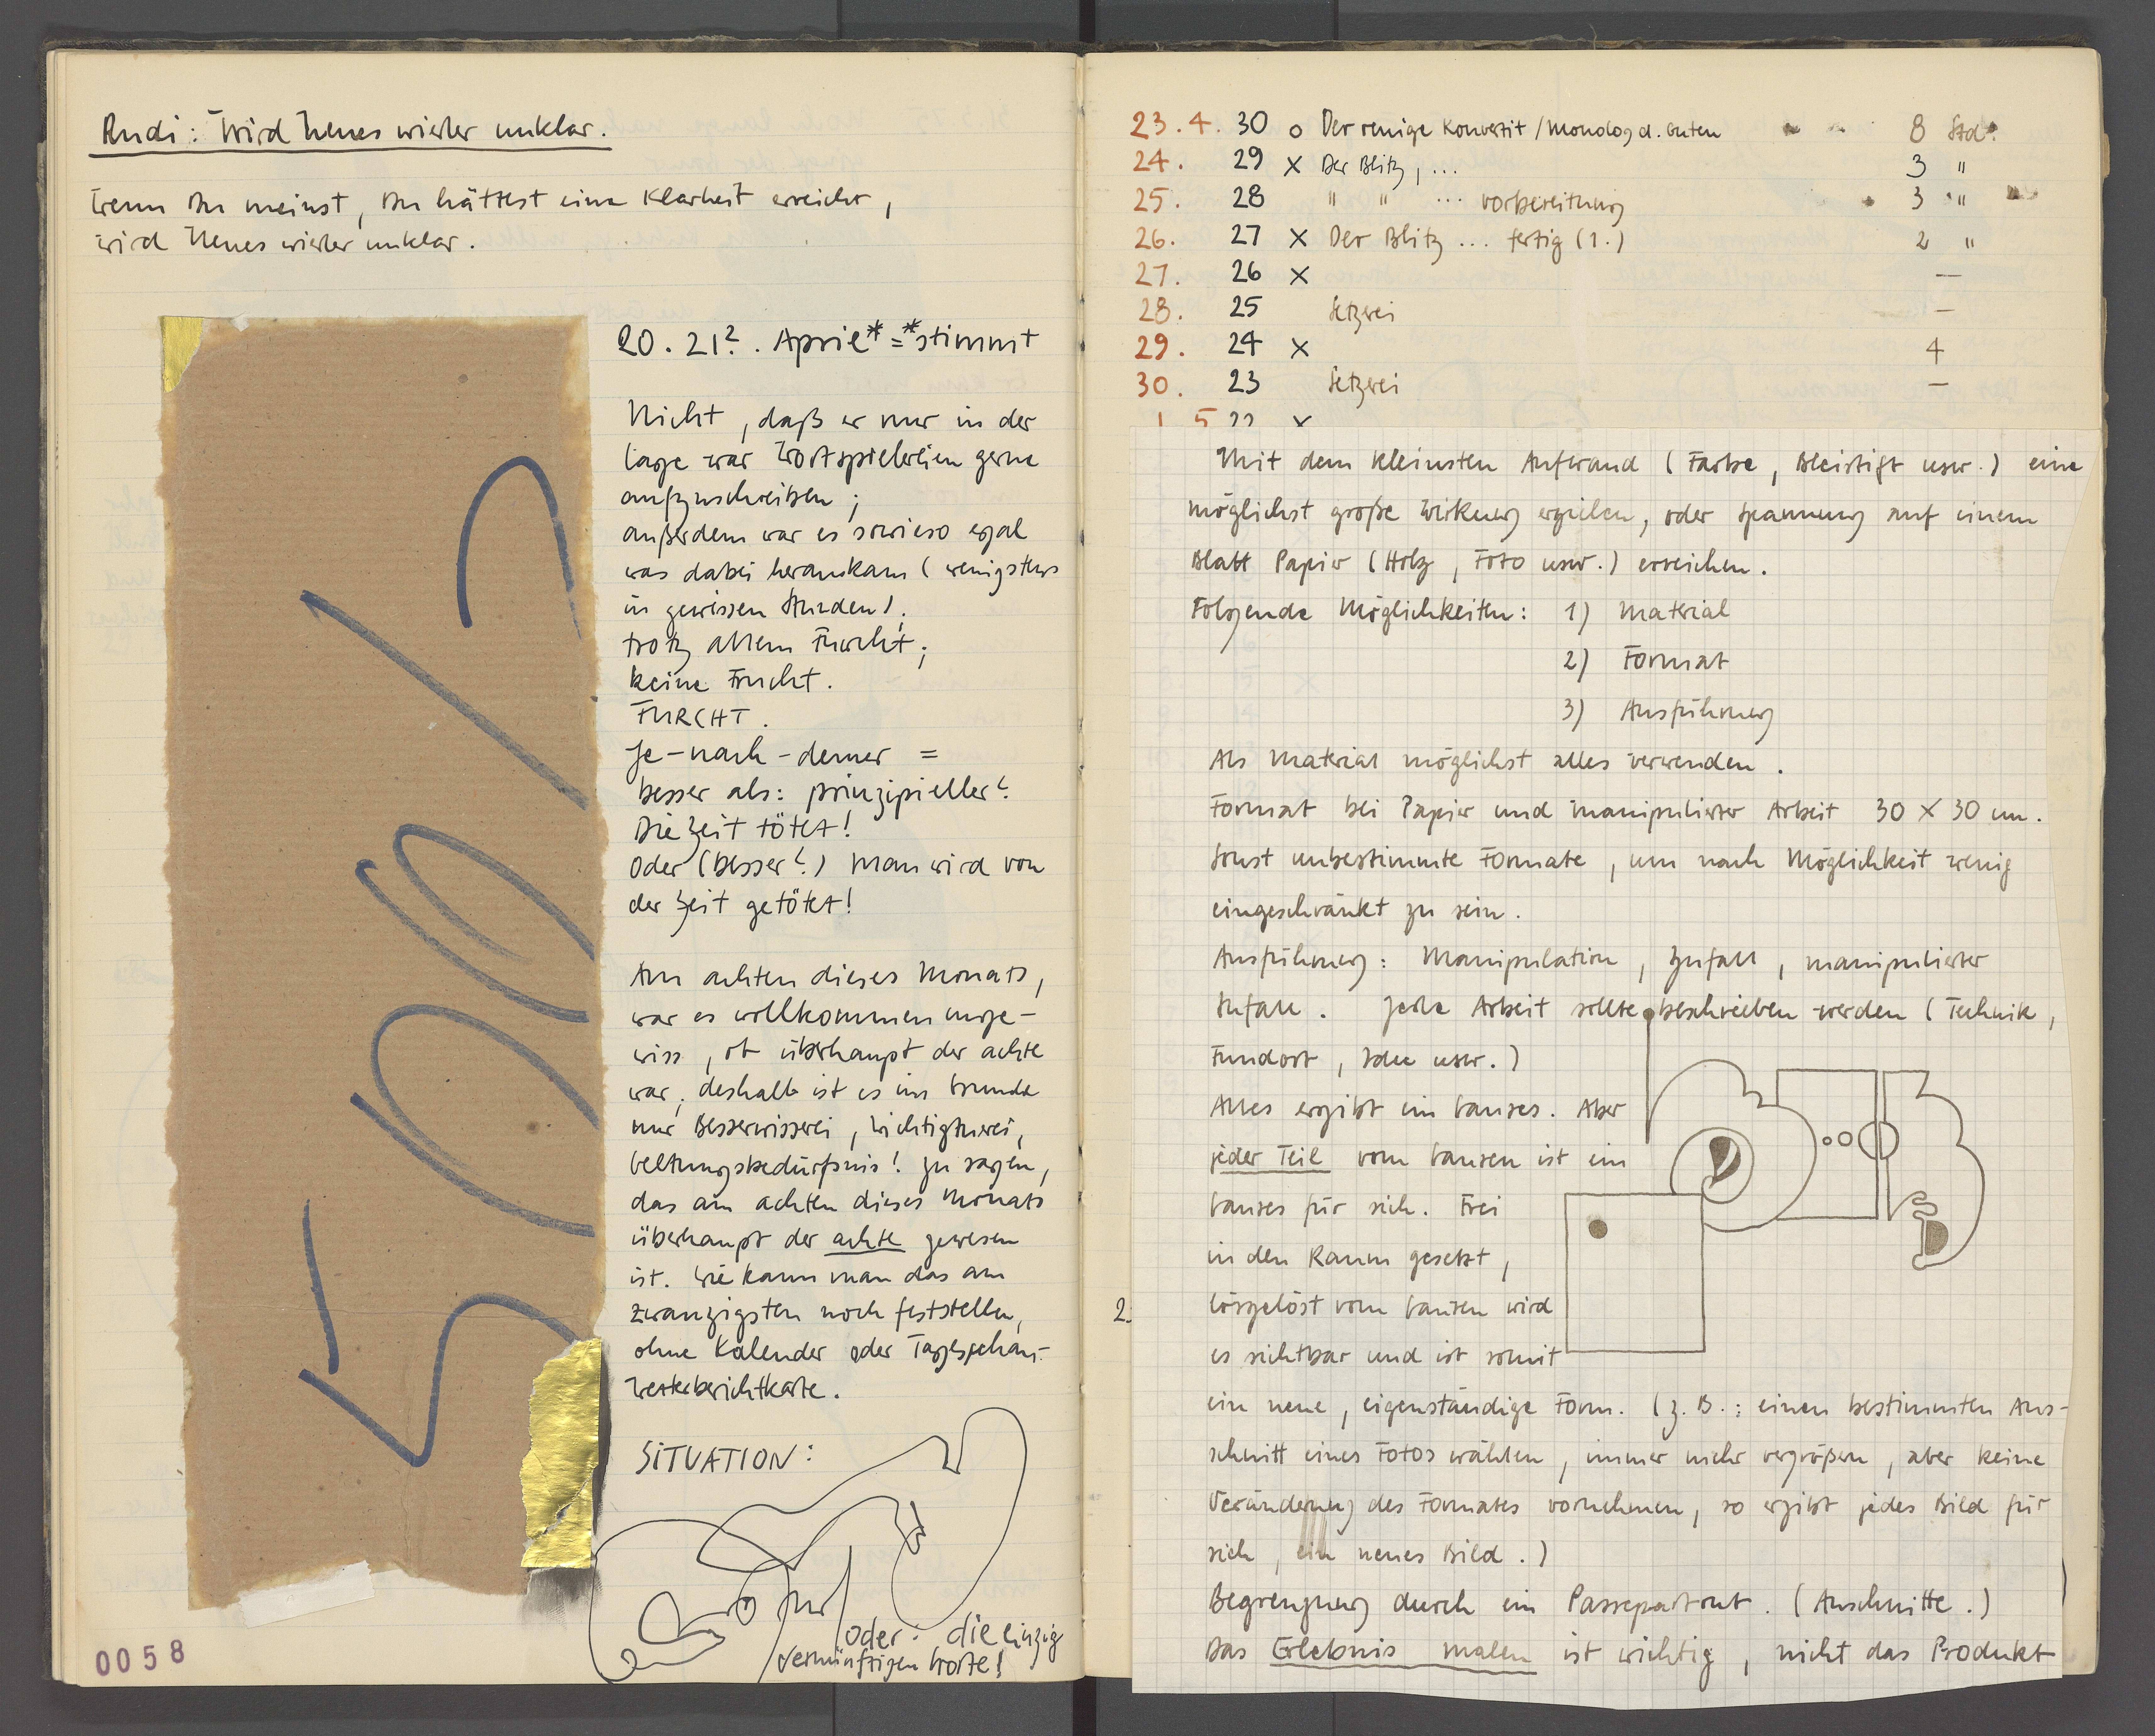 Rudi: Wird Neues wieder unklar.
Wenn Du meinst, Du hättest eine Klarheit erreicht,
wird Neues wieder unklar.
20. 21?. April* = *stimmt
Nicht, daß er nur in der
Lage war Wortspielereien gerne
aufzuschreiben;
außerdem war es sowieso egal
was dabei herauskam (wenigstens
in gewissen Stunden);
trotz allem Furcht;
keine Frucht.
FURCHT.
Je-nach-demer =
besser als: prinzipieller?
Die Zeit tötet!
Oder (besser?) man wird von
der Zeit getötet!
Am achten dieses Monats,
war es vollkommen unge-
wiss, ob überhaupt der achte
war; deshalb ist es im Grunde
nur Besserwisserei, Wichtigtuerei,
Geltungsbedürfnis! zu sagen,
das am achten dieses Monats
überhaupt der achte gewesen
ist. Wie kann man das am
zwanzigsten noch feststellen,
ohne Kalender oder Tagesschau-
Wetterberichtkarte.
SITUATION:
oder: die einzig
vernünftigen Worte!
500/2
0058
23.4. 30 o Der reuige Konvertit / Monolog d. Guten 8 Std.
24. 29 x Der Blitz, ... 3 "
25. 28 " " ... Vorbereitung 3 "
26. 27 x Der Blitz ... fertig (1.) 2 "
27. 26 x —
28. 25 Setzerei —
29. 24 x 4
30. 23 Setzerei —
1. 5 22 x
Mit dem kleinsten Aufwand (Farbe, Bleistift usw.) eine
möglichst große Wirkung erzielen, oder Spannung auf einem
Blatt Papier (Holz, Foto usw.) erreichen.
Folgende Möglichkeiten: 1) Material
2) Format
3) Ausführung
Als Material möglichst alles verwenden.
Format bei Papier und manipulierter Arbeit 30 x 30 cm.
Sonst unbestimmte Formate, um nach Möglichkeit wenig
eingeschränkt zu sein.
Ausführung: Manipulation, Zufall, manipulierter
Zufall. Jede Arbeit sollte beschrieben werden (Technik,
Fundort, Idee usw.)
Alles ergibt ein Ganzes. Aber
jeder Teil vom Ganzen ist ein
Ganzes für sich. Frei
in den Raum gesetzt,
2.
losgelöst vom Ganzen wird
es sichtbar und ist somit
ein neue, eigenständige Form. (z.B.: einen bestimmten Aus-
schnitt eines Fotos wählen, immer mehr vergrößern, aber keine
Veränderung des Formates vornehmen, so ergibt jedes Bild für
sich, ein neues Bild.)
Begrenzung durch ein Passepartout. (Ausschnitte.)
Das Erlebnis malen ist wichtig, nicht das Produkt